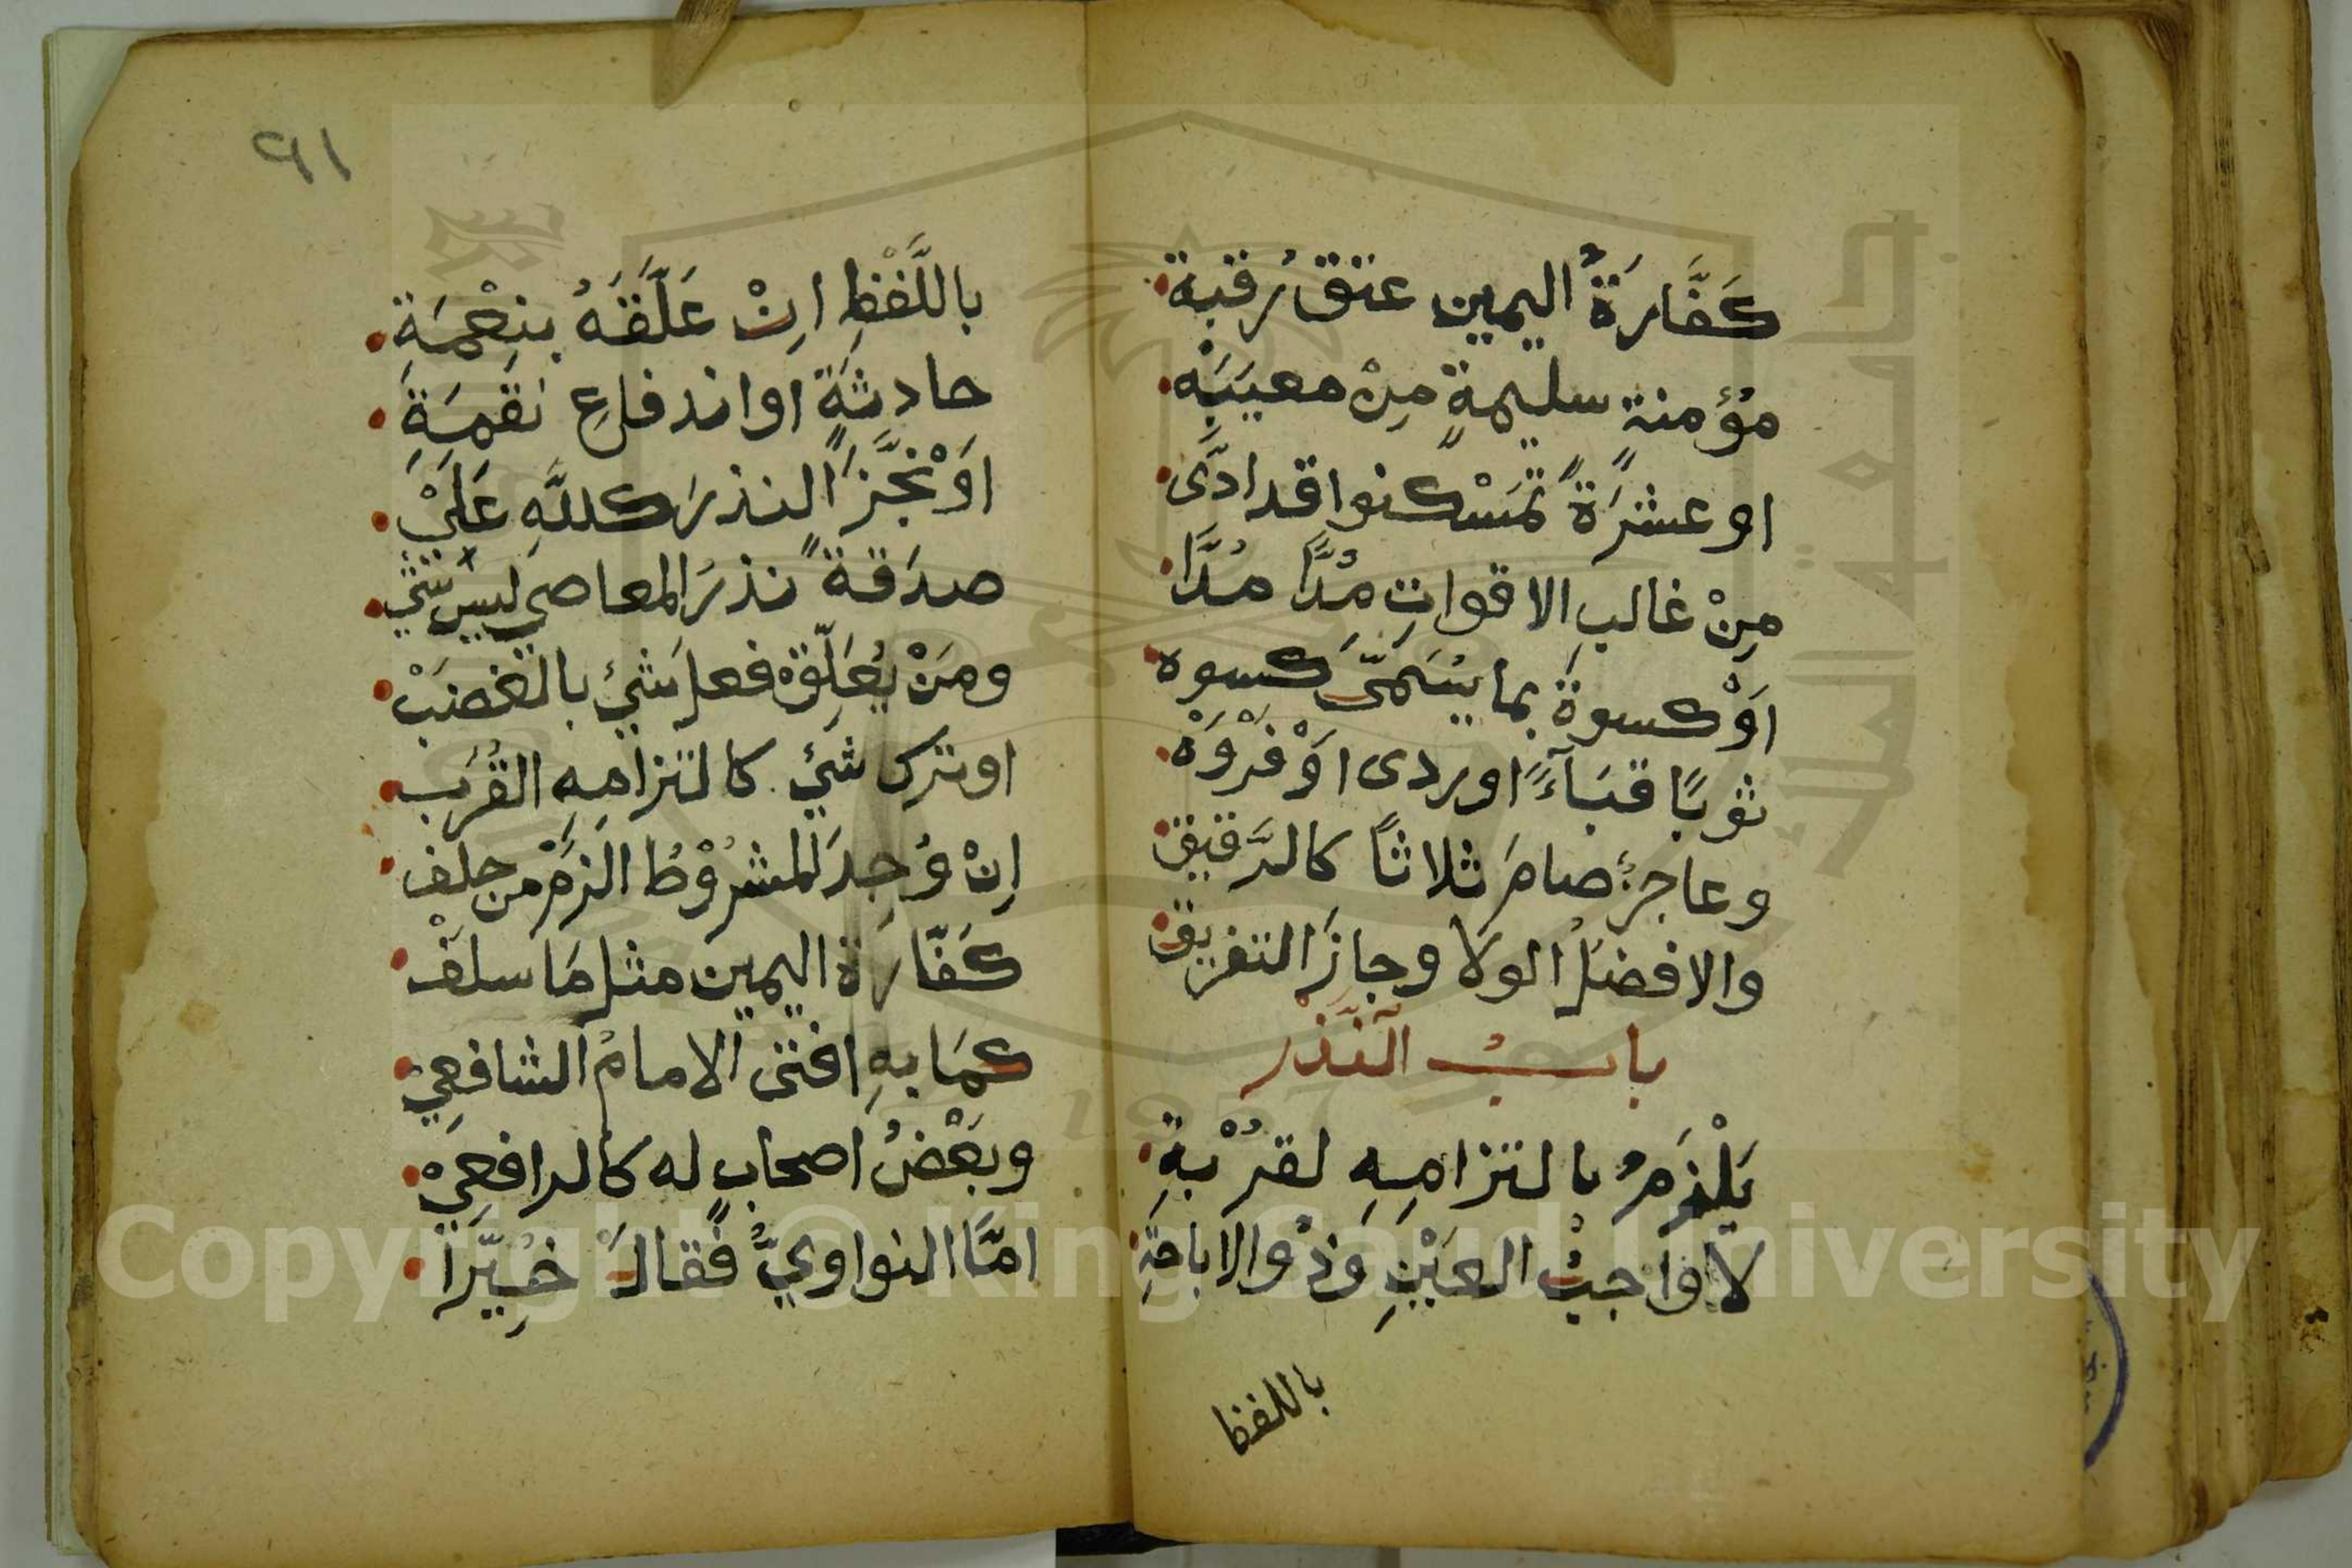 كَفَّارَةُ اليمين عتق رقبة
مؤمنةٍ سليمةٍ مِنْ معيبَهْ
او عشرَةً تمَسْكنوا قدادَّى
مِنْ غالبِ الاقواتِ مُدًّا مُدَّا
اَوْ كسوةً بما يسَمَّى كسوه
ثوبًا قبَآءً اوردى اَوْ فَرْوَهْ
وعاجزٌ صامَ ثلاثًا كالرَّقيق
والافضلُ الولا وجازَ التفريق
بابُ النَّذْر
يَلْزَمُ بالتزامِهِ لقُرْبةِ
لا واجبُ العَيْنِ وَذُو الاباحَةِ
باللفظ
٩١
باللَّفْظِ اِنْ عَلَّقَهُ بنِعْمَةِ
حادثةٍ او اندفاعِ نقمَةِ
اَوْ نَجَّزَ النذرَ كللَّهِ عَلَيْ
صدَقةً نذرُ المعاصي ليس شيْ
ومَنْ يُعَلِّقْ فعل شيْءٍ بالغضبْ
او ترك شيْءٍ كالتزامِهِ القُرَب
اِنْ وُجِدَ المشرُوْطُ الزمْ من حلف
كَفّارةَ اليمين مثل مَا سلفْ
كمَا بهِ افتى الامامُ الشافعِيْ
وبَعْضُ اصحابٍ له كالرافعِيْ
امَّا النواويُّ فقالَ خُيِّرَا
Copyright © King Saud University
جامعة الملك
1957